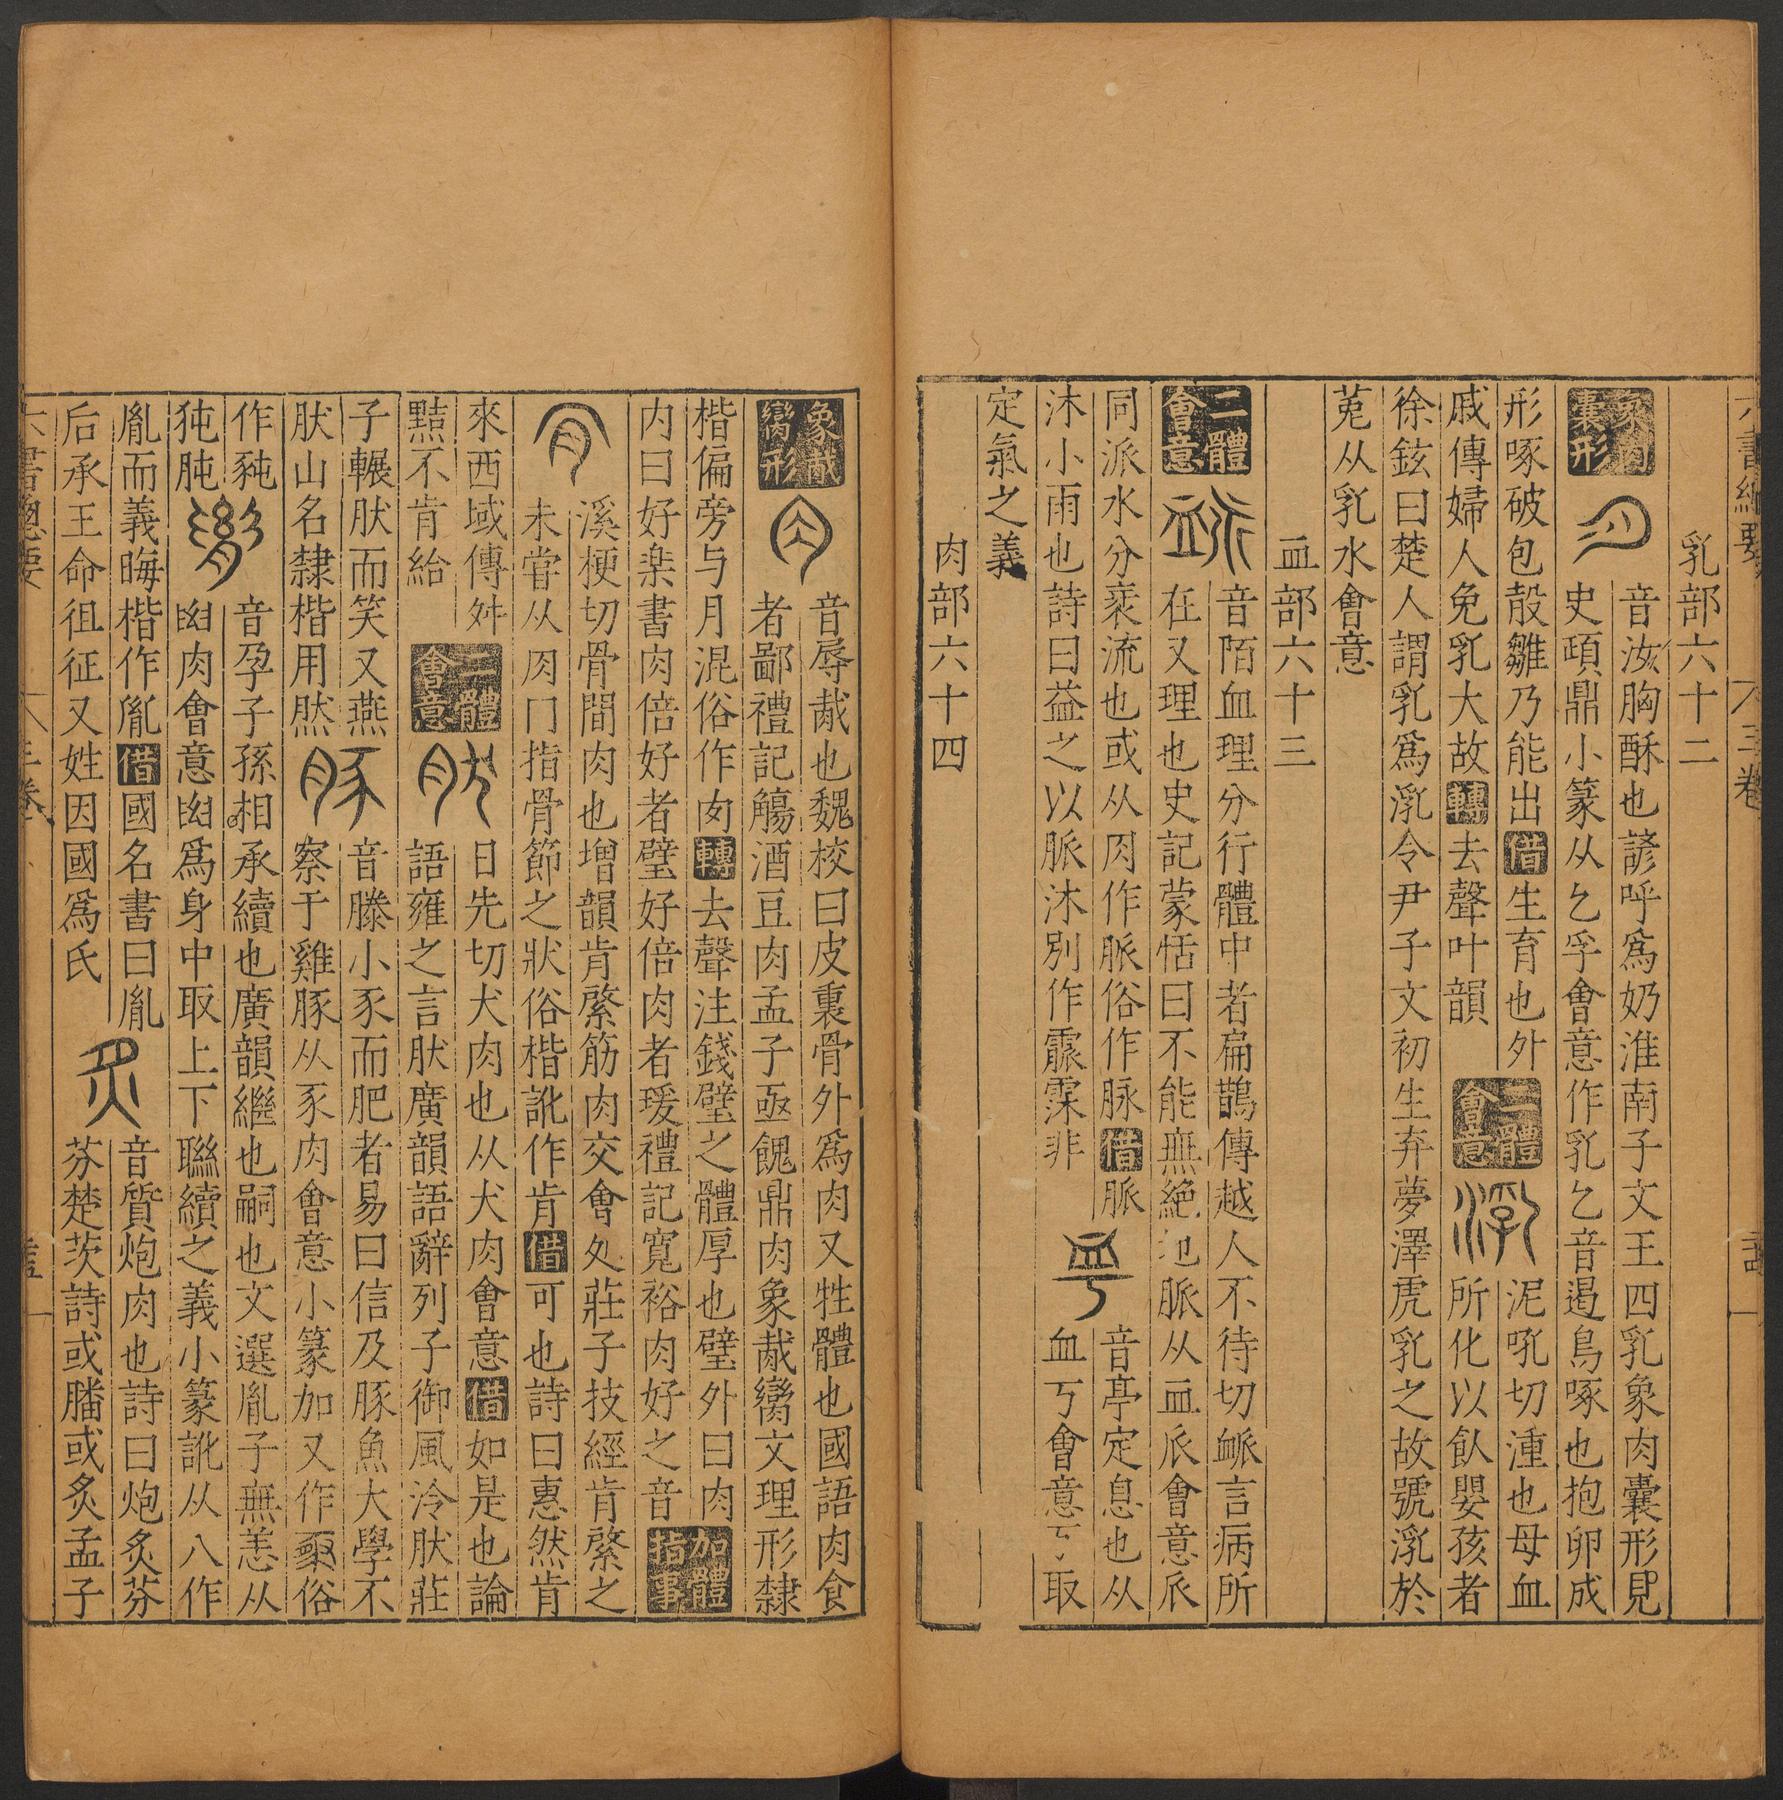 六書緫要 三卷
乳部六十二
象肉囊形 音汝胸酥也諺呼爲奶淮南子文王四乳象肉囊形見
史頙鼎小篆从乞孚會意作乳乞音遏鳥啄也抱卵成
形啄破包殼雛乃能出借生育也外
戚傳婦人免乳大故轉去聲叶韻
二體會意 泥吼切湩也母血
所化以飮嬰孩者
徐鉉曰楚人謂乳爲㳶令尹子文初生弃夢澤虎乳之故號㳶於
菟从乳水會意
血部六十三
二體會意 音陌血理分行體中者扁鵲傳越人不待切衇言病所
在又理也史記蒙恬曰不能無絶地脈从血𠂢會意𠂢
同派水分㐮流也或从肉作脈俗作脉借脈
沐小雨也詩曰益之以脈沐別作霢霂非
音亭定息也从
血丂會意丂取
定氣之義
肉部六十四
象胾臠形 音辱胾也魏校曰皮裏骨外爲肉又牲體也國語肉食
者鄙禮記觴酒豆肉孟子亟餽鼎肉象胾臠文理形隸
楷偏旁与月混俗作肉轉去聲注錢璧之體厚也璧外曰肉
内曰好楽書肉倍好者璧好倍肉者瑗禮記寬裕肉好之音
加體指事 溪梗切骨間肉也增韻肯綮筋肉交會処莊子技經肯綮之
未甞从肉冂指骨節之狀俗楷訛作肯借可也詩曰惠然肯
來西域傳舛
黠不肯給
二體會意 日先切犬肉也从犬肉會意借如是也論
語雍之言肰廣韻語辭列子御風泠肰莊
子輾肰而笑又燕
肰山名隸楷用然
音滕小豕而肥者易曰信及豚魚大學不
察于雞豚从豕肉會意小篆加又作𢑓俗
作豘
㹠肫 音孕子孫相承續也廣韻繼也嗣也文選胤子無恙从
幽肉會意幽爲身中取上下聯續之義小篆訛从八作
胤而義晦楷作㣧借國名書曰胤
后承王命徂征又姓因國爲氏
音質炮肉也詩曰炮炙芬
芬楚茨詩或膰或炙孟子
六書緫要 三卷